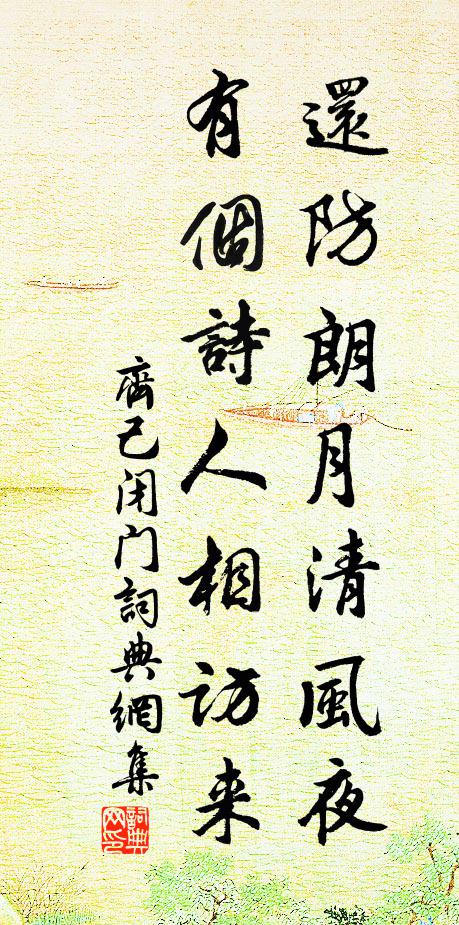 還防朗月清風夜
有個詩人相访来
齊己闭门詞典網集
詞典网印